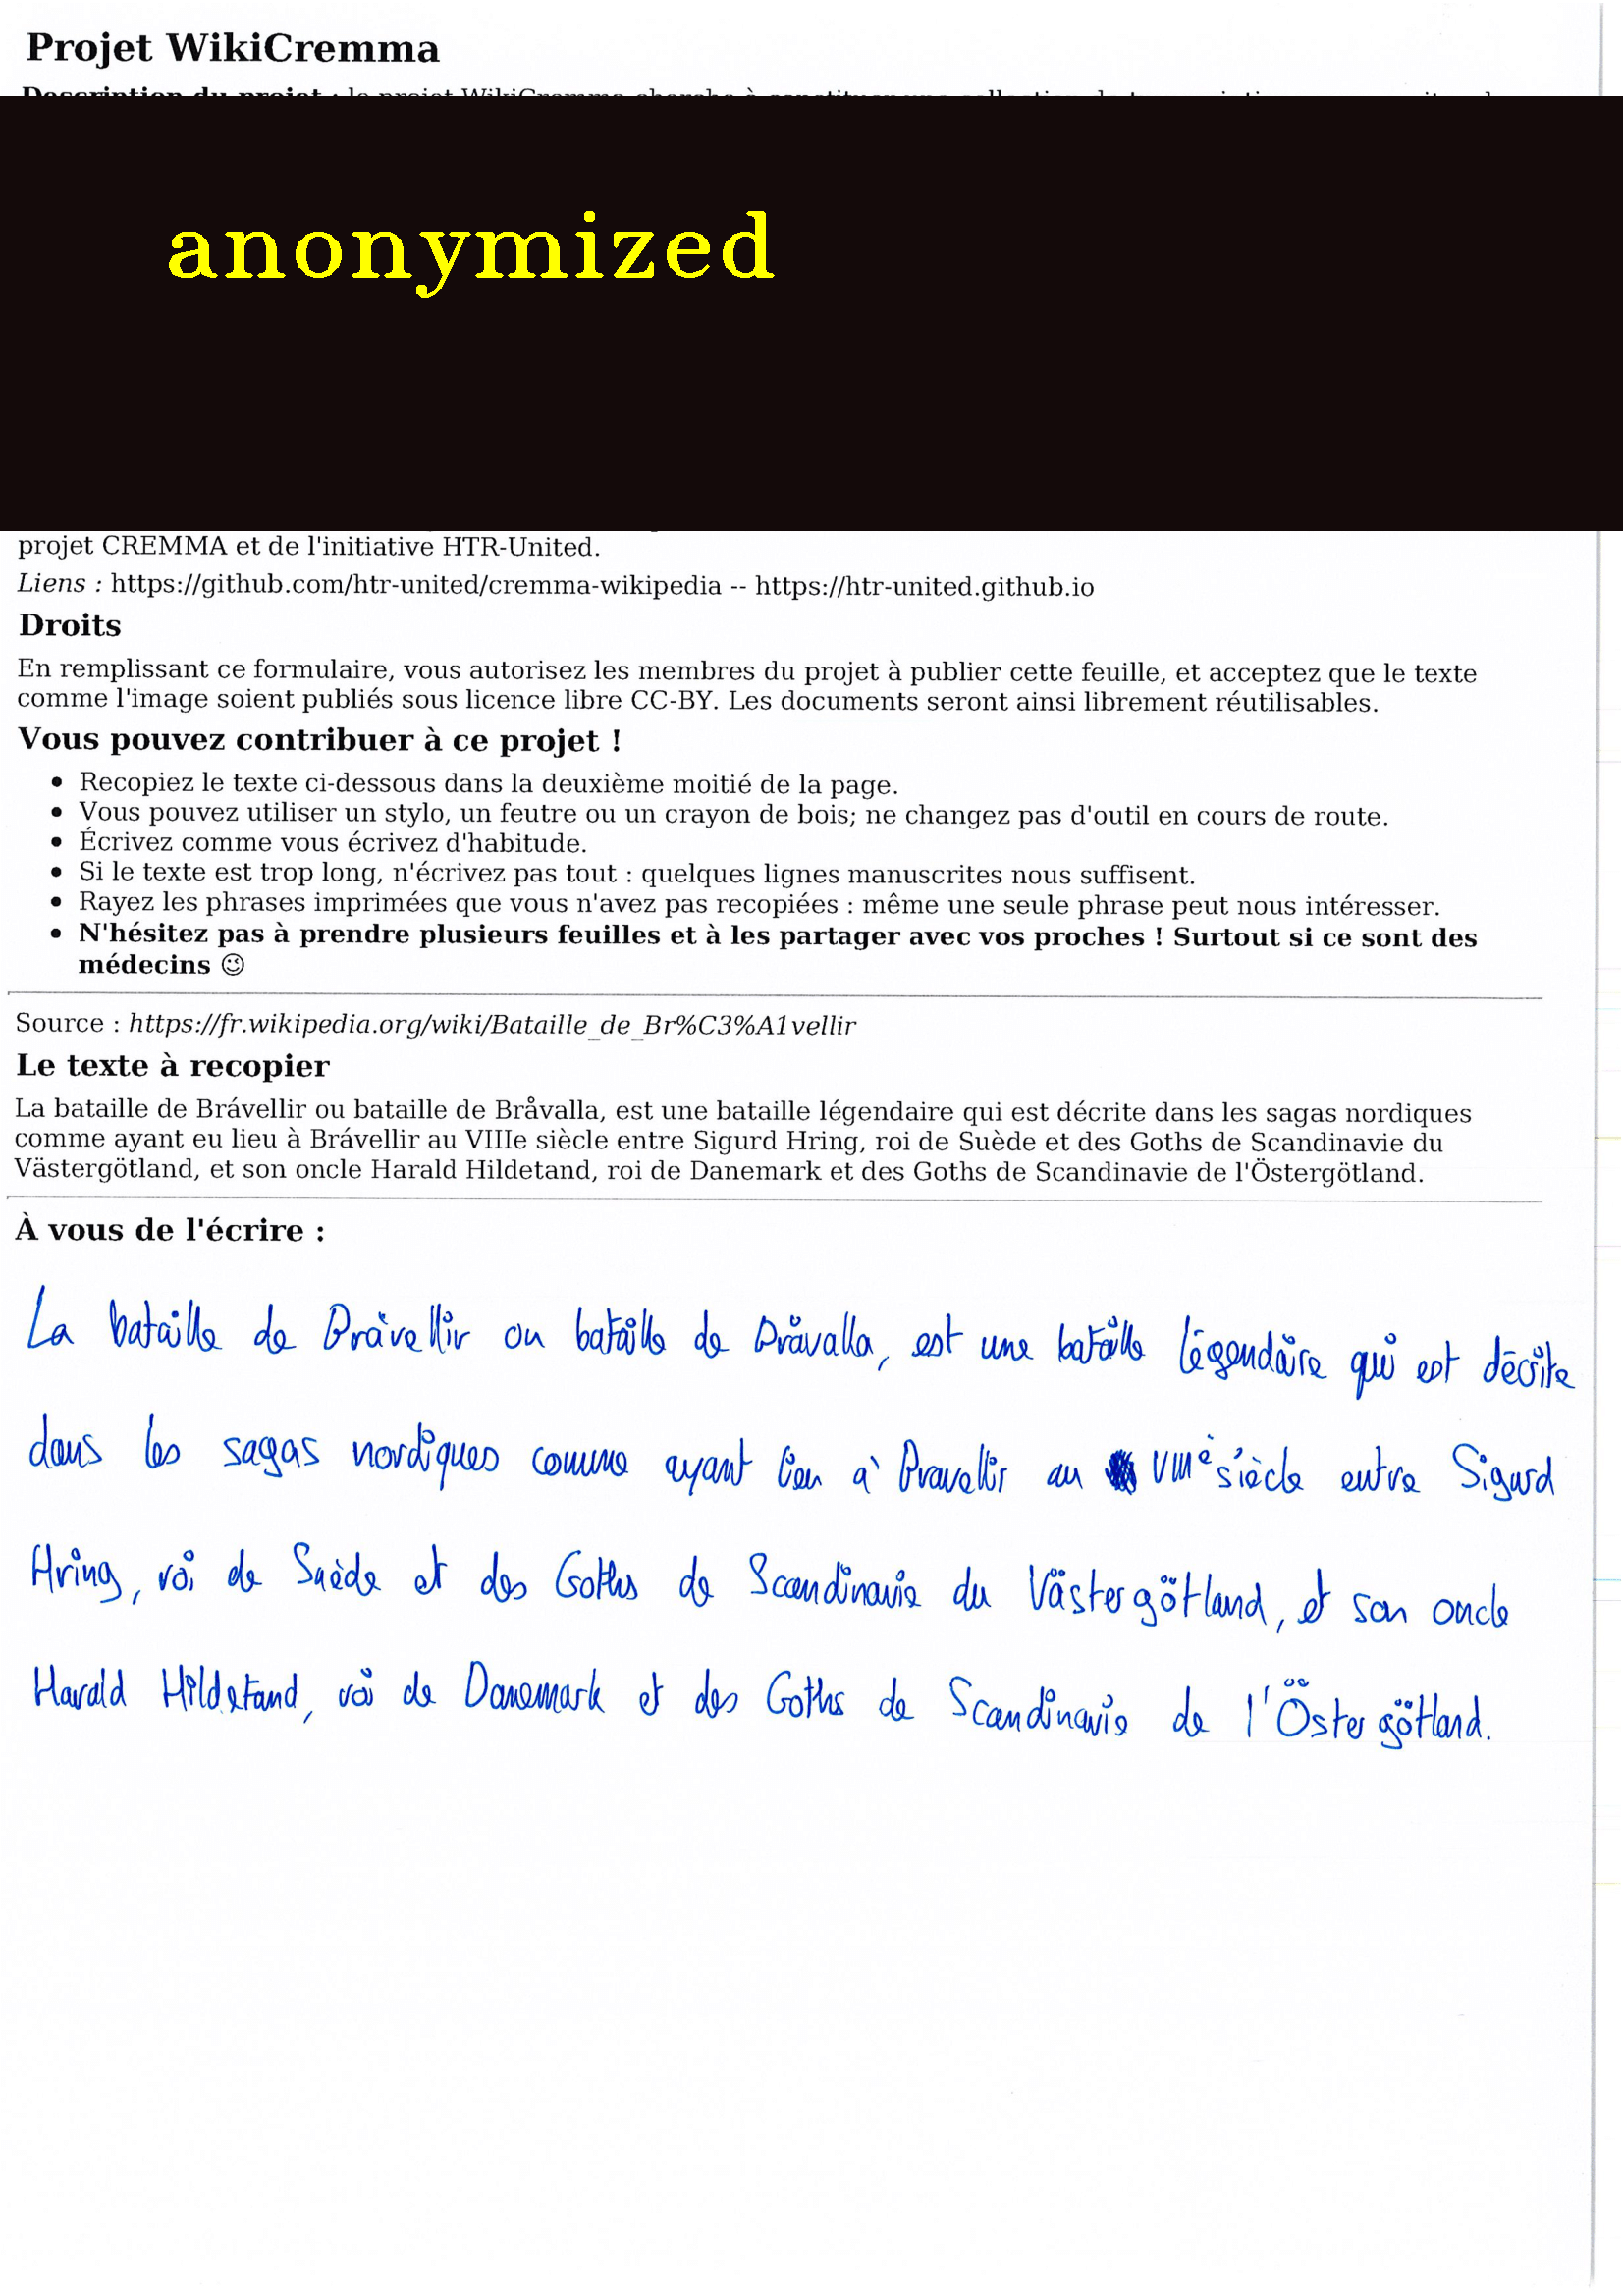 Projet WikiCremma
anonymized
projet CREMMA et de l'initiative HTR-United.
Liens : https://github.com/htr-united/cremma-wikipedia -- https://htr-united.github.io
Droits
En remplissant ce formulaire, vous autorisez les membres du projet à publier cette feuille, et acceptez que le texte
comme l'image soient publiés sous licence libre CC-BY. Les documents seront ainsi librement réutilisables.
Vous pouvez contribuer à ce projet !
• Recopiez le texte ci-dessous dans la deuxième moitié de la page.
• Vous pouvez utiliser un stylo, un feutre ou un crayon de bois; ne changez pas d'outil en cours de route.
• Écrivez comme vous écrivez d'habitude.
• Si le texte est trop long, n'écrivez pas tout : quelques lignes manuscrites nous suffisent.
• Rayez les phrases imprimées que vous n'avez pas recopiées : même une seule phrase peut nous intéresser.
• N'hésitez pas à prendre plusieurs feuilles et à les partager avec vos proches ! Surtout si ce sont des
médecins 😉
Source : https://fr.wikipedia.org/wiki/Bataille_de_Br%C3%A1vellir
Le texte à recopier
La bataille de Brávellir ou bataille de Bråvalla, est une bataille légendaire qui est décrite dans les sagas nordiques
comme ayant eu lieu à Brávellir au VIIIe siècle entre Sigurd Hring, roi de Suède et des Goths de Scandinavie du
Västergötland, et son oncle Harald Hildetand, roi de Danemark et des Goths de Scandinavie de l'Östergötland.
À vous de l'écrire :
La bataille de Bràvellir ou bataille de Bråvalla, est une bataille légendaire qui est décrite
dans les sagas nordiques comme ayant lieu à Bravellir au VIIIe siècle entre Sigurd
Hring, roi de Suède et des Goths de Scandinavie du Västergötland, et son oncle
Harald Hildetand, roi de Danemark et des Goths de Scandinavie de l'Östergötland.